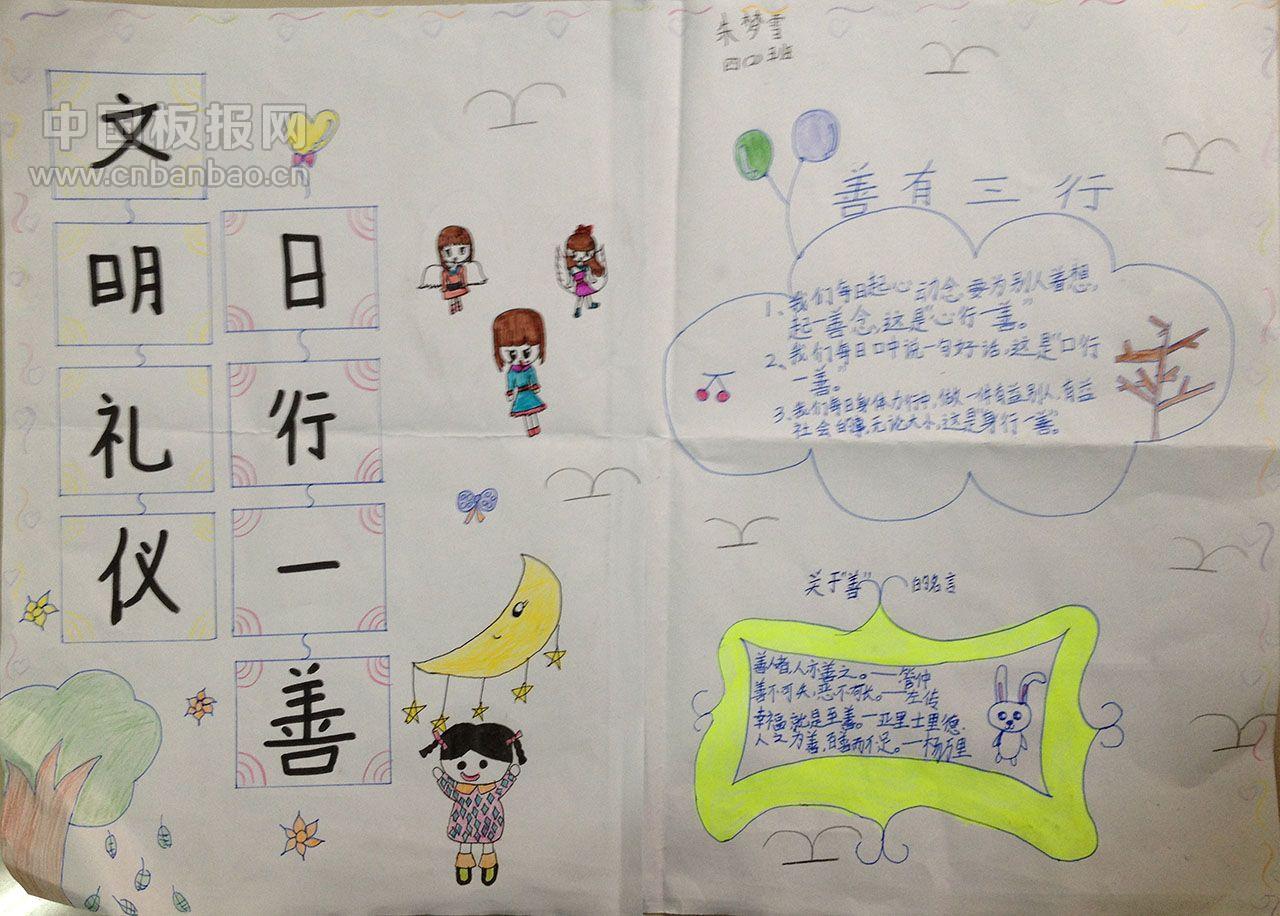 中国板报网
www.cnbanbao.cn
文明礼仪
日行一善
朱梦雪
四(2)班
善有三行
1、我们每日起心动念,要为别人着想,
起一善念,这是"心行一善"。
2、我们每日口中说一句好话,这是"口行
一善"
3、我们每日身体力行中,做一件有益别人,有益
社会的事,无论大小,这是"身行一善"。
关于"善"的名言
善人者,人亦善之。——管仲
善不可失,恶不可长。——左传
幸福就是至善。—亚里士里德
人之为善,百善而不足。—杨万里